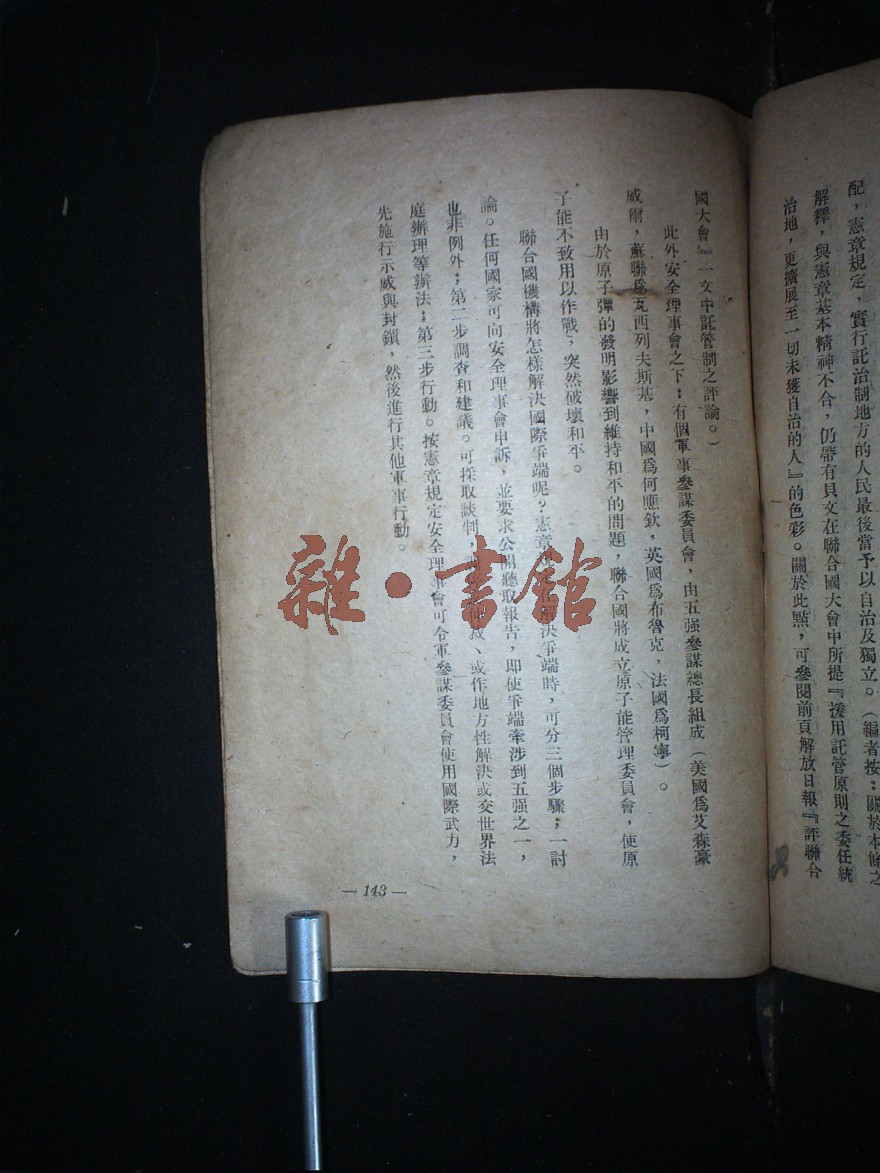 配，憲章規定，實行託治制地方的人民最後當予以自治及獨立。（編者按：關於本條之
解釋，與憲章基本精神不合，仍帶有貝文在聯合國大會中所提『援用託管原則之委任統
治地，更擴展至一切未獲自治的人』的色彩。關於此點，可參閱前頁解放日報『評聯合
國大會』一文中託管制之評論。）
此外安全理事會之下：有個軍事參謀委員會，由五强參謀總長組成（美國爲艾森豪
威爾，蘇聯爲瓦西列夫斯基，中國爲何應欽，英國爲布魯克，法國爲柯寧）。
由於原子彈的發明影響到維持和平的問題，聯合國將成立原子能管理委員會，使原
子能不致用以作戰，突然破壞和平。
聯合國機構將怎樣解決國際爭端呢？憲章規 決爭端時，可分三個步驟；一討
論。任何國家可向安全理事會申訴，並要求公開聽取報告，即使爭端牽涉到五强之一，
也非例外；第二步調查和建議。可採取談判， 裁、或作地方性解決或交世界法
庭辦理等辦法；第三步行動。按憲章規定安全理事會可令軍參謀委員會使用國際武力，
先施行示威與封鎖，然後進行其他軍事行動。
— 143 —
雜·書館